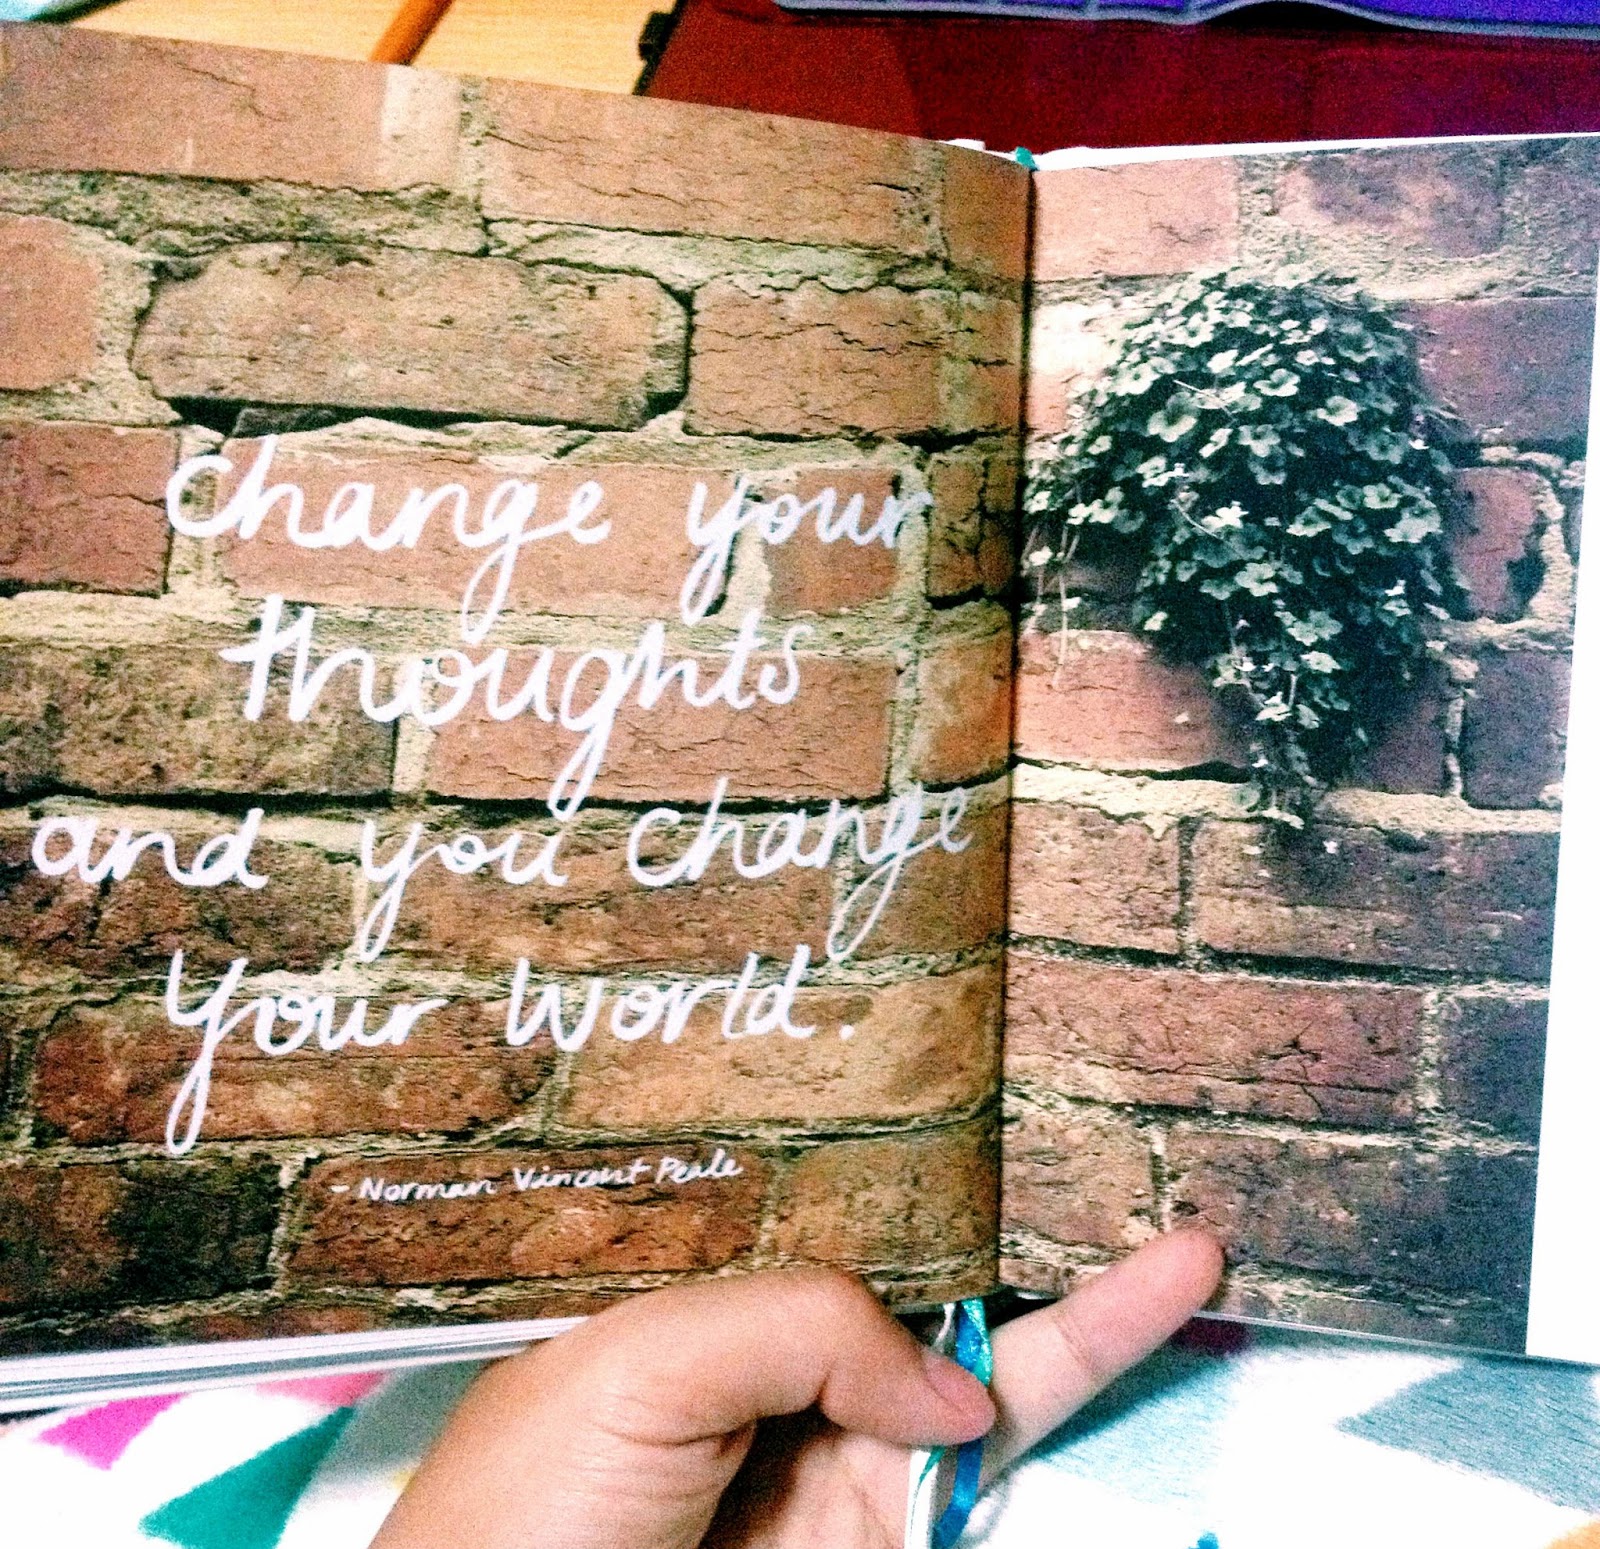 Change your
thoughts
and you change
your world.
- Norman Vincent Peale